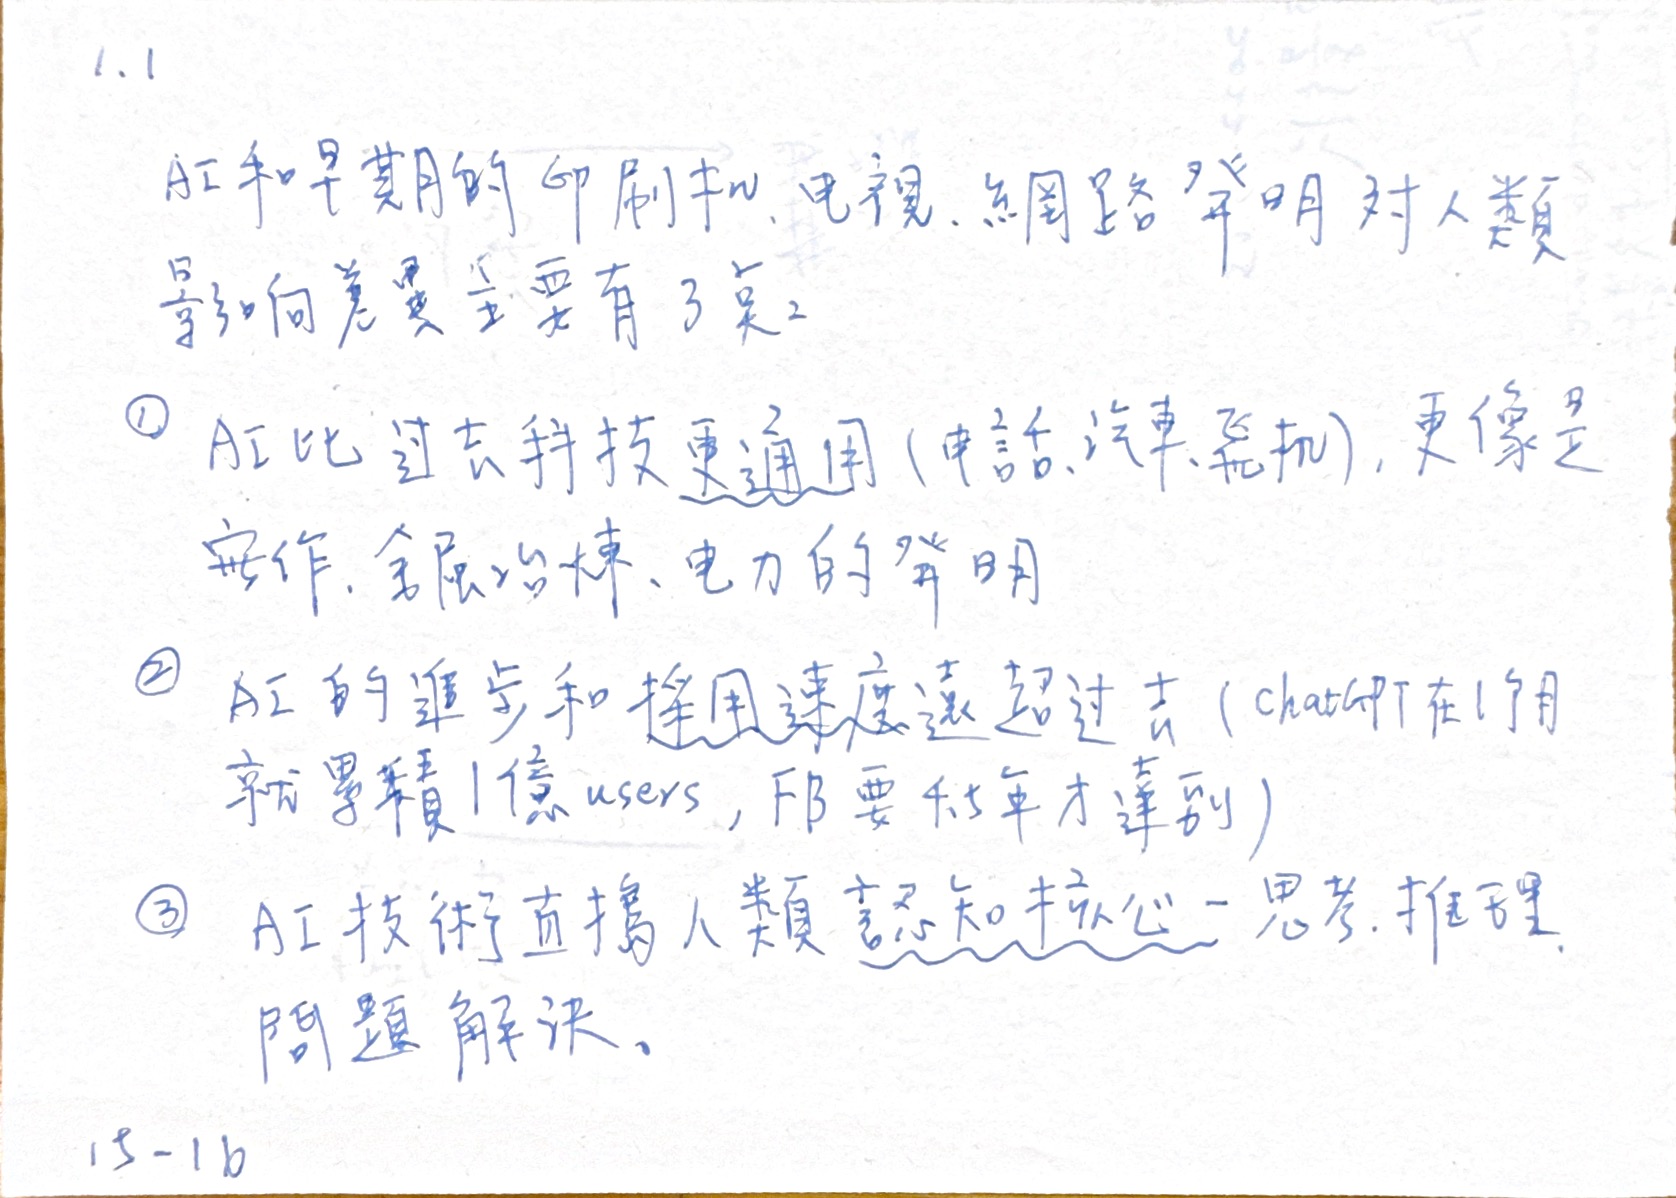 1.1
AI和早期的印刷机、电視、網路發明对人類
影响差異主要有3点。
① AI比过去科技更通用(电話、汽車、飛机),更像是
農作、金屬冶煉、电力的發明
② AI的進步和採用速度遠超过去(ChatGPT在1个月
就累積1億users, FB要4.5年才達到)
③ AI技術直搗人類認知核心-思考、推理、
問題解決。
15-16